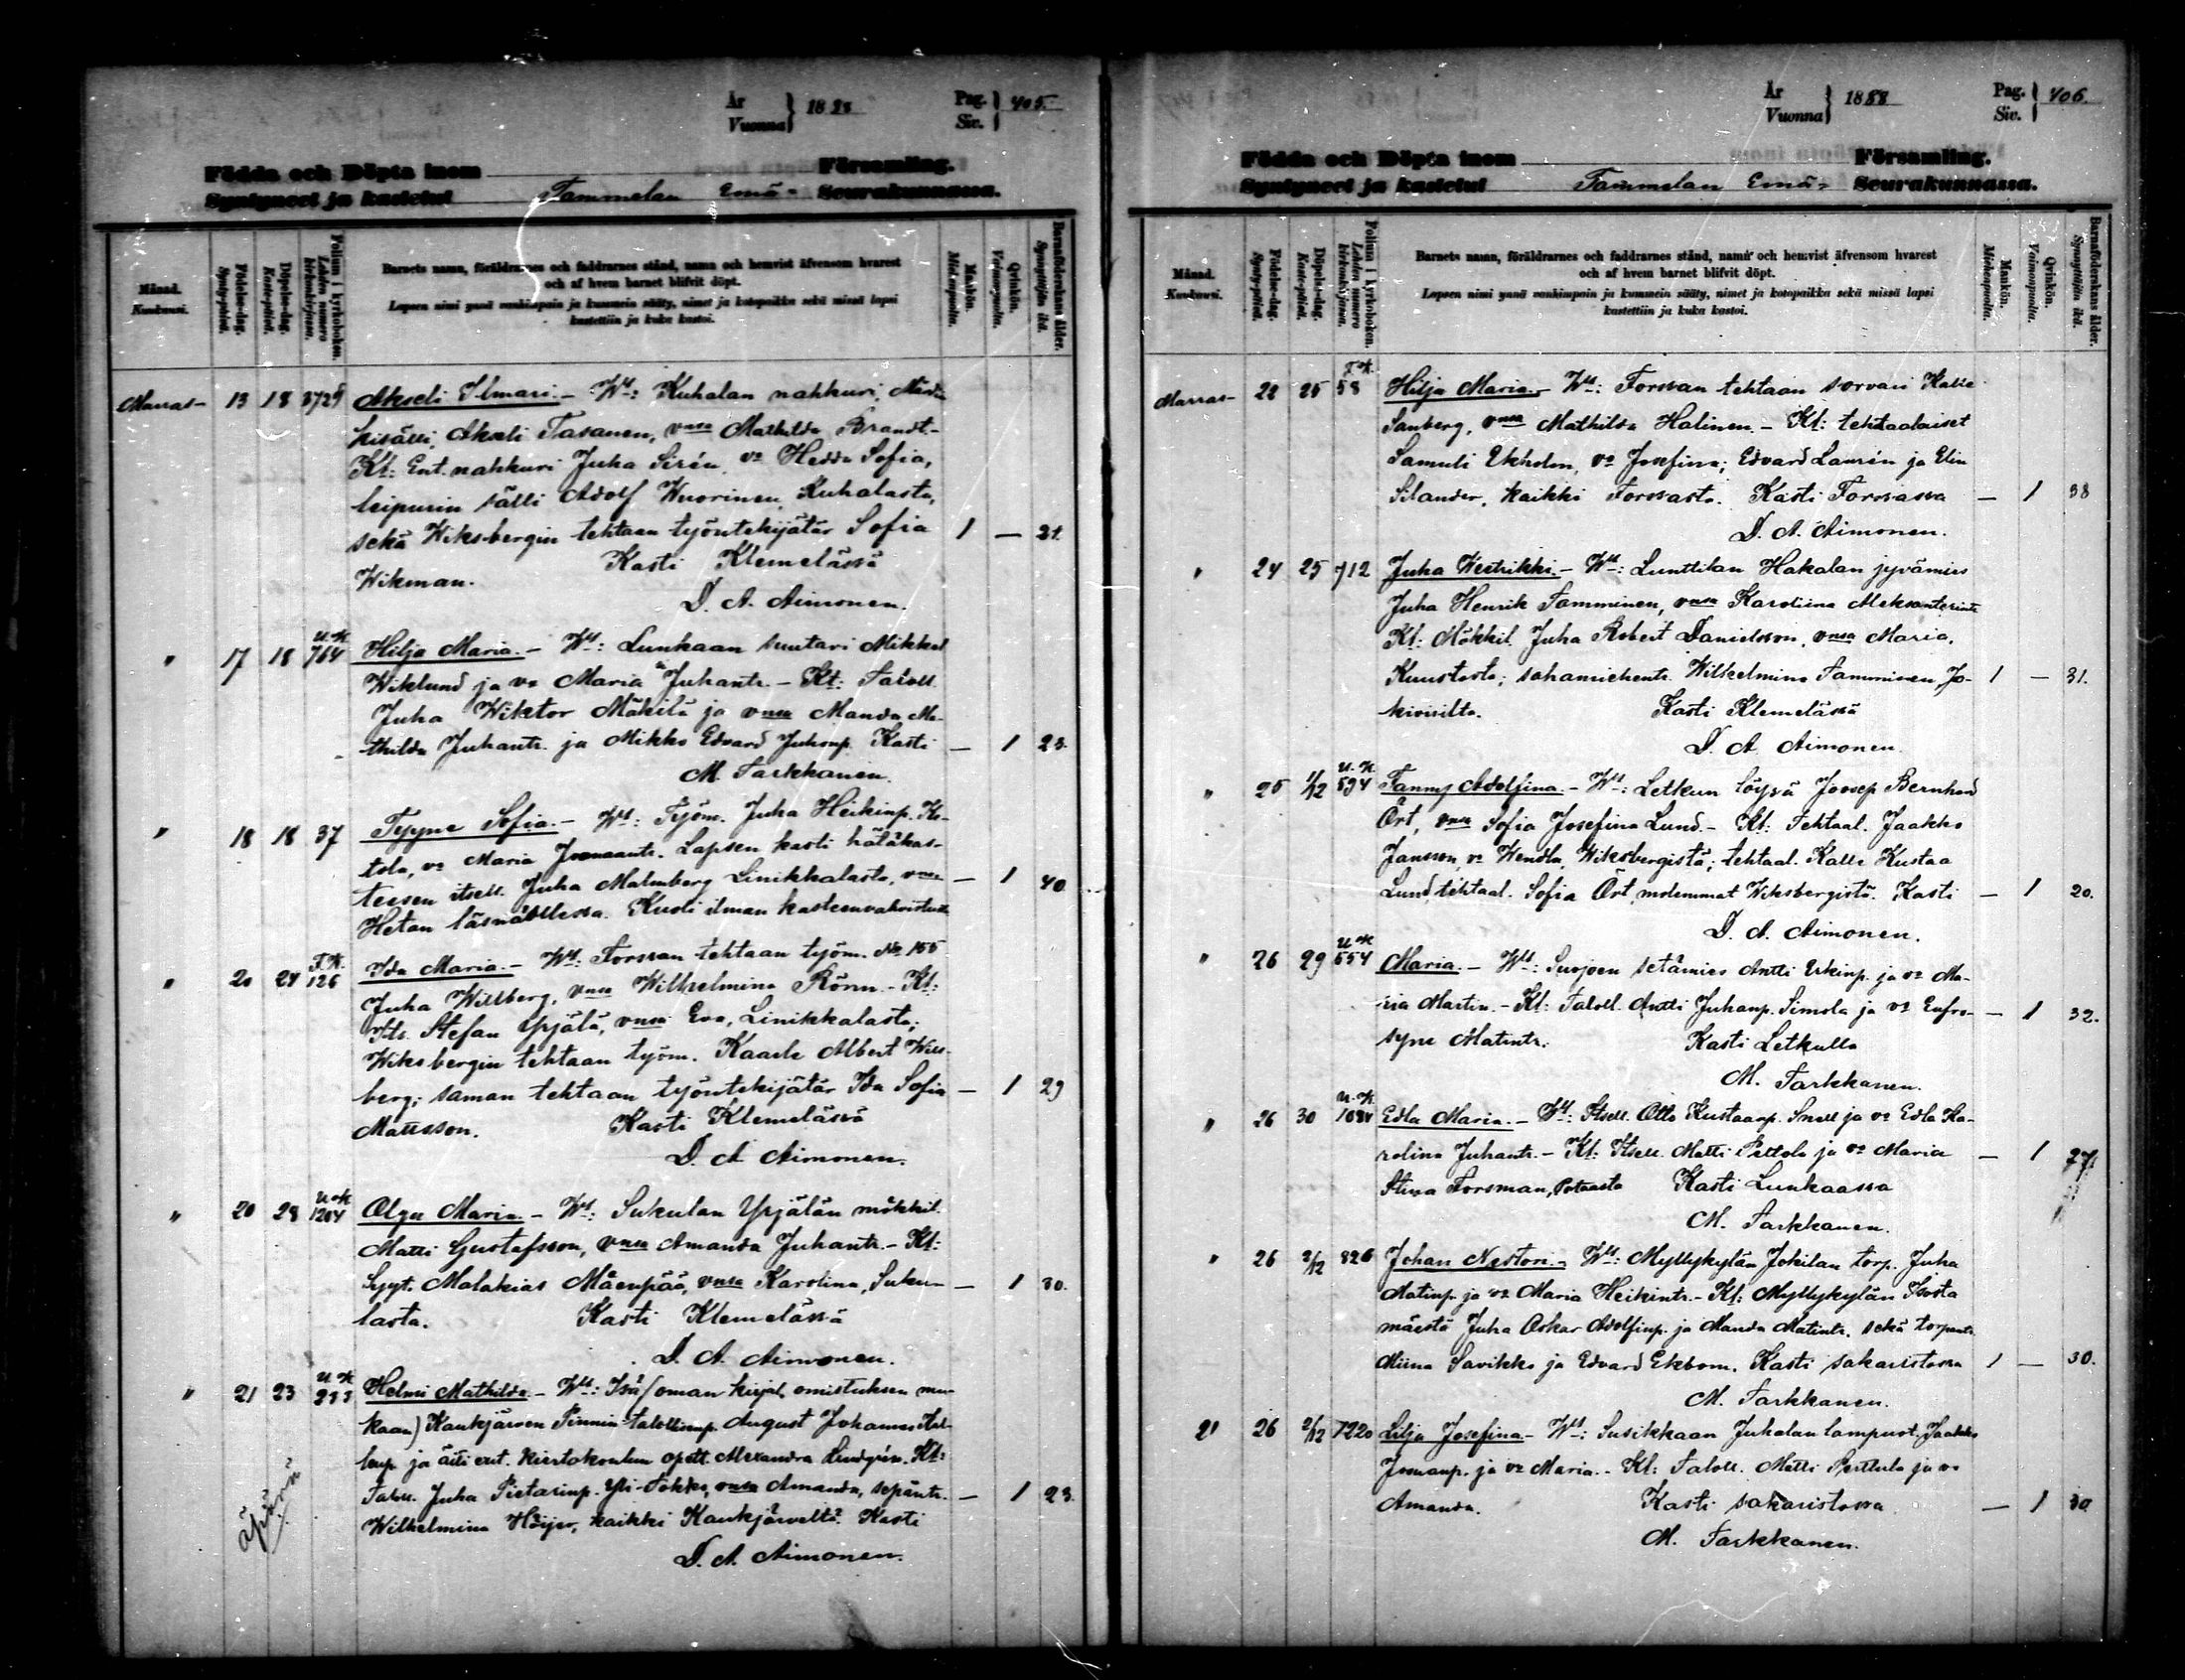 År
Vuonna } 1888
Pag.
Siv. } 405.
Födda och Döpta inom Församling.
Syntyneet ja kastetut Tammelan Emä- Seurakunnassa.
Månad.
Kuukausi.
Födelse-dag.
Synty-päivä.
Döpelse-dag.
Kaste-päivä.
Folium i kyrkoboken.
Lehden numero kirkonkirjassa.
Barnets namn, föräldrarnes och faddrarnes stånd, namn och hemvist äfvensom hvarest
och af hvem barnet blifvit döpt.
Lapsen nimi ynnä vanhimpain ja kummein sääty, nimet ja kotopaikka sekä missä lapsi
kastettiin ja kuka kastoi.
Mankön.
Miehenpuolta.
Qvinkön.
Vaimonpuolta.
Barnaföderskans ålder.
Synnyttäjän ikä.
Marras- 13 18 Akseli Ilmari. - Wt: Kuhalan nahkuri,
kisälli, Akseli Tasanen, vnsa Mathilda Brandt.-
Kt: Ent. nahkuri Juha Sirén, vo Hedda Sofia,
leipurin sälli Adolf Wuorinen, Kuhalasta,
sekä Wiksbergin tehtaan työntekijätär Sofia 1 — 21.
Wikman. Kasti Klemelässä
D. A. Aimonen.
U.K.
" 17 18 764 Hilja Maria. - Wt: Lunkaan suutari Mikkel
Wiklund ja vo Maria Juhantr. - Kt: Taloll.
Juha Wiktor Mäkilä ja vnsa Manda Ma-
thilda Juhantr. ja Mikko Edvard Juhonp. Kasti — 1 23.
M. Tarkkanen.
" 18 18 37 Tyyne Sofia. - Wt: Työm. Juha Heikinp. Ks-
tola, vo Maria Joonaantr. Lapsen kasti hätäkas-
teesen itsell. Juha Malmberg Linikkalasta, vnsa — 1 40
Hetan läsnäollessa. Kuoli ilman kasteenvahvistusta
T.K.
" 20 24 126 Ida Maria. - Wt: Forssan tehtaan työm. No 155
Juha Willberg, vnsa Wilhelmina Rönn. - Kt:
Stefan Yrjälä, vnsa Eva, Linikkalasta;
Wiksbergin tehtaan työm. Kaarle Albert Will-
berg; saman tehtaan työntekijätär Ida Sofia — 1 29
Mattsson. Kasti Klemelässä
D. A. Aimonen.
U.K.
" 20 28 1204 Olga Maria. - Wt: Sukulan Yrjälän mökkil.
Matti Gustafsson, vnsa Amanda Juhantr. - Kt:
Malakias Mäenpää, vnsa Karolina, Suku- — 1 30.
lasta. Kasti Klemelässä
D. A. Aimonen.
U.K.
" 21 23 233 Helmi Mathilda. - Wt: Isä (oman kirjal. omistuksen mu-
kaan) Kaukjärven Pinnin talollisenp. August Johannes
ja äiti ent. kiertokoulun opett. Alexandra Lindgrén. Kt:
Taloll. Juha Pietarinp. Yli-Tokko, vnsa Amanda, sepäntr. — 1 23.
Wilhelmina Höijer, kaikki Kaukjärveltä. Kasti
D. A. Aimonen.
äpärä
År
Vuonna } 1888
Pag.
Siv. } 406.
Födda och Döpta inom Församling.
Syntyneet ja kastetut Tammelan Emä- Seurakunnassa.
Månad.
Kuukausi.
Födelse-dag.
Synty-päivä.
Döpelse-dag.
Kaste-päivä.
Folium i kyrkoboken.
Lehden numero kirkonkirjassa.
Barnets namn, föräldrarnes och faddrarnes stånd, namn och hemvist äfvensom hvarest
och af hvem barnet blifvit döpt.
Lapsen nimi ynnä vanhimpain ja kummein sääty, nimet ja kotopaikka sekä missä lapsi
kastettiin ja kuka kastoi.
Mankön.
Miehenpuolta.
Qvinkön.
Vaimonpuolta.
Barnaföderskans ålder.
Synnyttäjän ikä.
T.K.
Marras- 22 25 58 Hilja Maria. - Wt: Forssan tehtaan sorvari Kalle
Sanberg, vnsa Mathilda Halinen. - Kt: tehtaalaiset
Samuli Ekholm, vo Josefina; Edvard Laurén ja Elin
Silander, kaikki Forssasta. Kasti Forssassa — 1 38
D. A. Aimonen.
" 24 25 712 Juha Weetrikki. - Wt: Lunttilan Hakalan jyvämies
Juha Henrik Tamminen, vnsa Karoliina Aleksanterintr.
Kt: Mökkil. Juha Robert Danielsson, vnsa Maria,
Kuustosta; sahamiehentr. Wilhelmina Tamminen Jo- 1 — 31.
kivisilta. Kasti Klemelässä
D. A. Aimonen.
U.K.
" 25 1/12 594 Fanny Adolfina. - Wt: Letkun löysä Joosep Bernhard
Ört, vnsa Sofia Josefina Lund. - Kt: Tehtaal. Jaakko
Jansson, vo Wendla, Wiksbergistä; tehtaal. Kalle Kustaa
Lund, tehtaal. Sofia Ört, molemmat Wiksbergistä. Kasti — 1 20.
D. A. Aimonen.
U.K.
" 26 29 554 Maria. - Wt: Susjoen setämies Antti Erkinp. ja vo Ma-
ria Martin. - Kt: Taloll. Antti Juhanp. Simola ja vo Eufro- — 1 32.
syne Matintr. Kasti Letkulla
M. Tarkkanen.
U.K.
" 26 30 1084 Edla Maria. - Wt: Itsell. Otto Kustaanp. Snell ja vo Edla Ka-
rolina Juhantr. - Kt: Itsell. Matti Peltola ja vo Maria — 1 27
Stina Forsman, Potaasta Kasti Lunkaassa
M. Tarkkanen.
" 26 2/12 826 Johan Nestori. - Wt: Myllykylän Jokilan torp. Juha
Matinp. ja vo Maria Heikintr. - Kt: Myllykylän Isosta
mäestä Juha Oskar Adolfinp. ja Manda Matintr. sekä torpantr.
Miina Savikko ja Edvard Ekbom. Kasti sakaristossa 1 — 30.
M. Tarkkanen.
21 26 2/12 1220 Lilja Josefina. - Wt: Susikkaan Juhalan lampuot. Jaakko
Joosanp. ja vo Maria. - Kt: Taloll. Matti Perttula ja vo
Amanda. Kasti sakaristossa — 1 30
M. Tarkkanen.